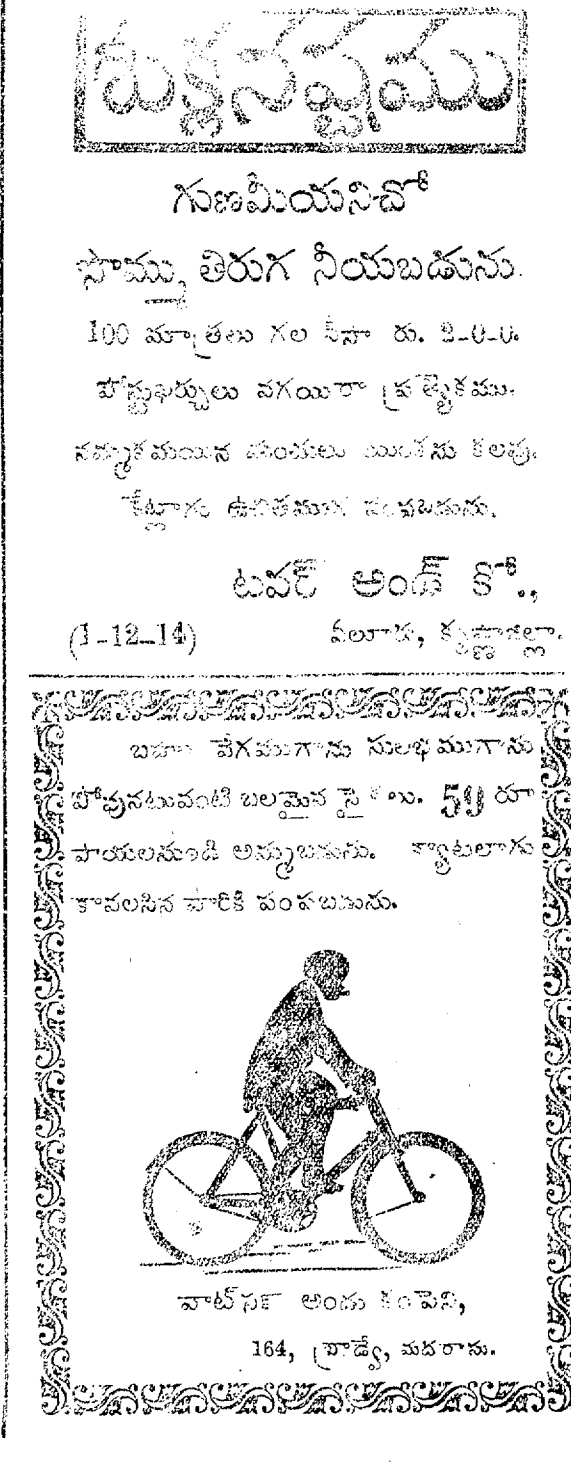 శుక్లనష్టము
గుణమీయనిచో
సొమ్ము తిరుగ నీయబడును.
100 మాత్రలు గల సీసా రు. 2-0-0.
పోస్టుఖర్చులు వగయిరా ప్రత్యేకము.
నమ్మకమయిన మందులు యింకను కలవు.
కేట్లాగు ఉచితముగ పంపబడును.
టవర్ అండ్ కో.,
(1-12-14) కృష్ణాజిల్లా.
బహు వేగముగాను సులభముగాను
పోవునటువంటి బలమైన సైకిలు. 59 రూ
పాయలనుండి అమ్మబడును. క్యాటలాగు
కావలసిన వారికి పంపబడును.
వాట్సన్ అండు కంపెని,
164, బ్రాడ్వే, మదరాసు.